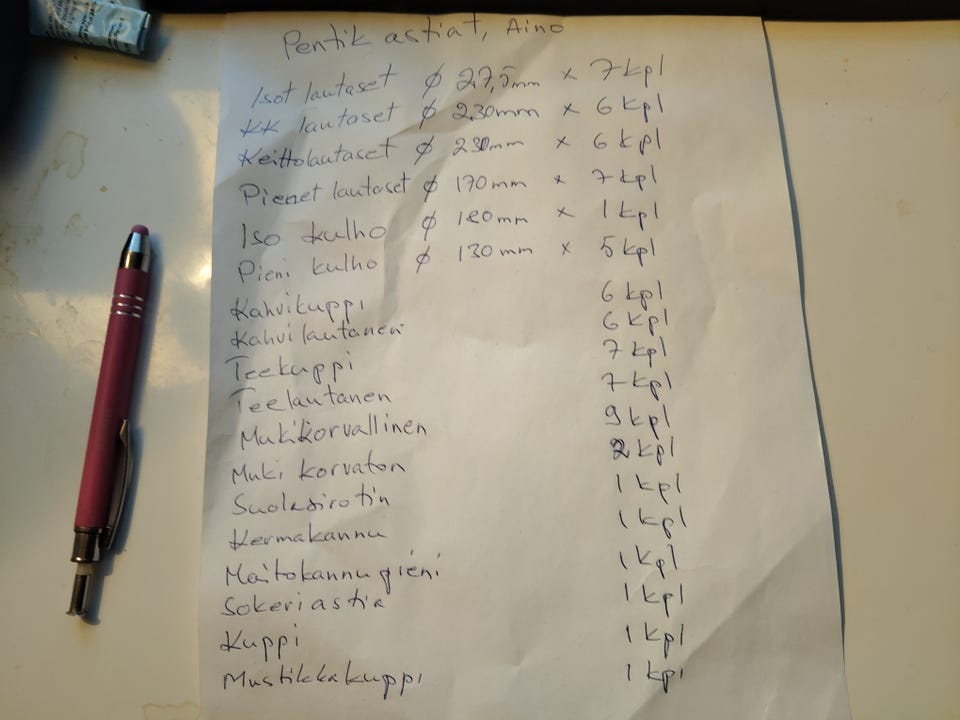 Pentik astiat, Aino
Isot lautaset ϕ 27,5mm x 7 kpl
KK lautaset ϕ 230mm x 6 kpl
Keittolautaset ϕ 230mm x 6 kpl
Pienet lautaset ϕ 170mm x 7 kpl
Iso kulho ϕ 180mm x 1 kpl
Pieni kulho ϕ 130mm x 5 kpl
Kahvikuppi 6 kpl
Kahvilautanen 6 kpl
Teekuppi 7 kpl
Teelautanen 7 kpl
Mukikorvallinen 9 kpl
Muki korvaton 2 kpl
Suolasirotin 1 kpl
Kermakannu 1 kpl
Maitokannu pieni 1 kpl
Sokeriastia 1 kpl
Kuppi 1 kpl
Mustikkakuppi 1 kpl